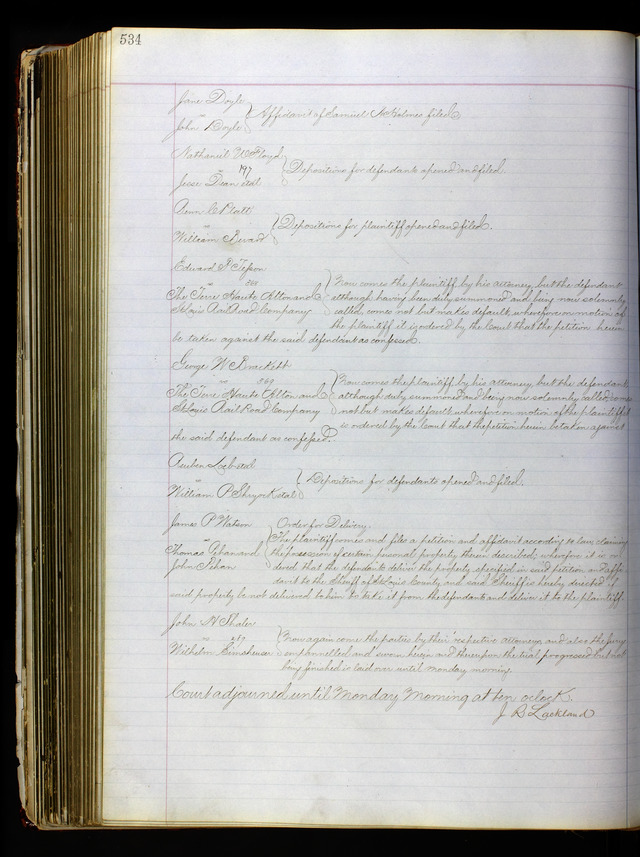 534
Jane Doyle
vs
John Doyle
Affidavit of Samuel A Holmes filed.
Nathaniel W Floyd
197
Jesse Dean etal
Depositions for defendants opened and filed.
Ann C Platt
vs
William
Depositions for plaintiff opened and filed.
Edward P Tesson
vs
The Terre Haute Alton and
St Louis Rail Road Company
Now comes the plaintiff by his attorney, but the defendant
although having been duly summoned and being now solemnly
called, comes not but makes default, wherefore on motion of
the plaintiff it is ordered by the Court that the petition herein
be taken against the said defendant as confessed.
George W Brackett
vs 569
The Terre Haute Alton and
St Louis Rail Road Company
Now comes the plaintiff by his attorney, but the defendant
although duly summoned and being now solemnly called comes
not but makes default, wherefore on motion of the plaintiff it
is ordered by the Court that the petition herein be taken against
the said defendant as confessed.
vs
William P Shryock etal
Depositions for defendants opened and filed.
James P Watson
vs
Thomas and
John
Order for Delivery.
The plaintiff comes and files a petition and affidavit according to law, claiming
the possession of certain personal property therein described; wherefore it is or-
dered that the defendants deliver the property specified in said petition and affi-
davit to the Sheriff of St Louis County and said Sheriff is hereby directed if
said property be not delivered to him to take it from the defendants and deliver it to the plaintiff.
John N Shaler
vs
Wilhelm
Now again come the parties by their respective attorneys and also the jury
empannelled and sworn herein and thereupon the trial progressed but not
being finished is laid over until Monday morning
Court adjourned until Monday Morning at ten oclock.
J R Lackland